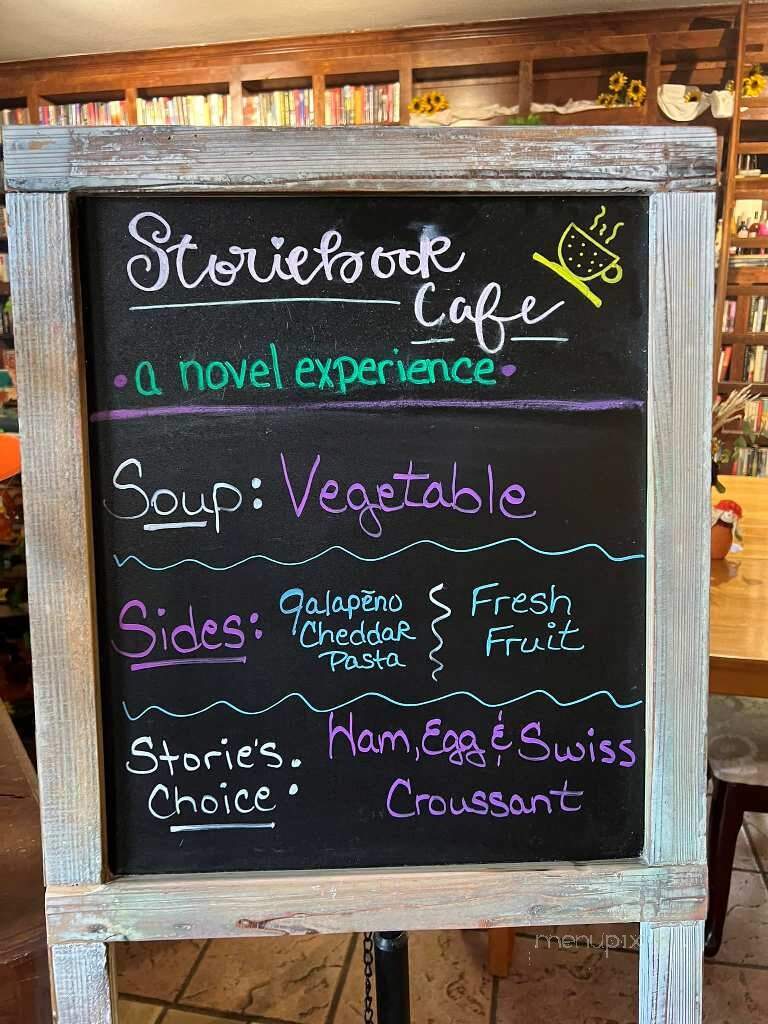 Storiebook
Cafe
•a novel experience•
Soup: Vegetable
Sides:
Jalapēno
Cheddar
Pasta
Fresh
Fruit
Storie's
Choice:
Ham, Egg & Swiss
Croussant
menupix